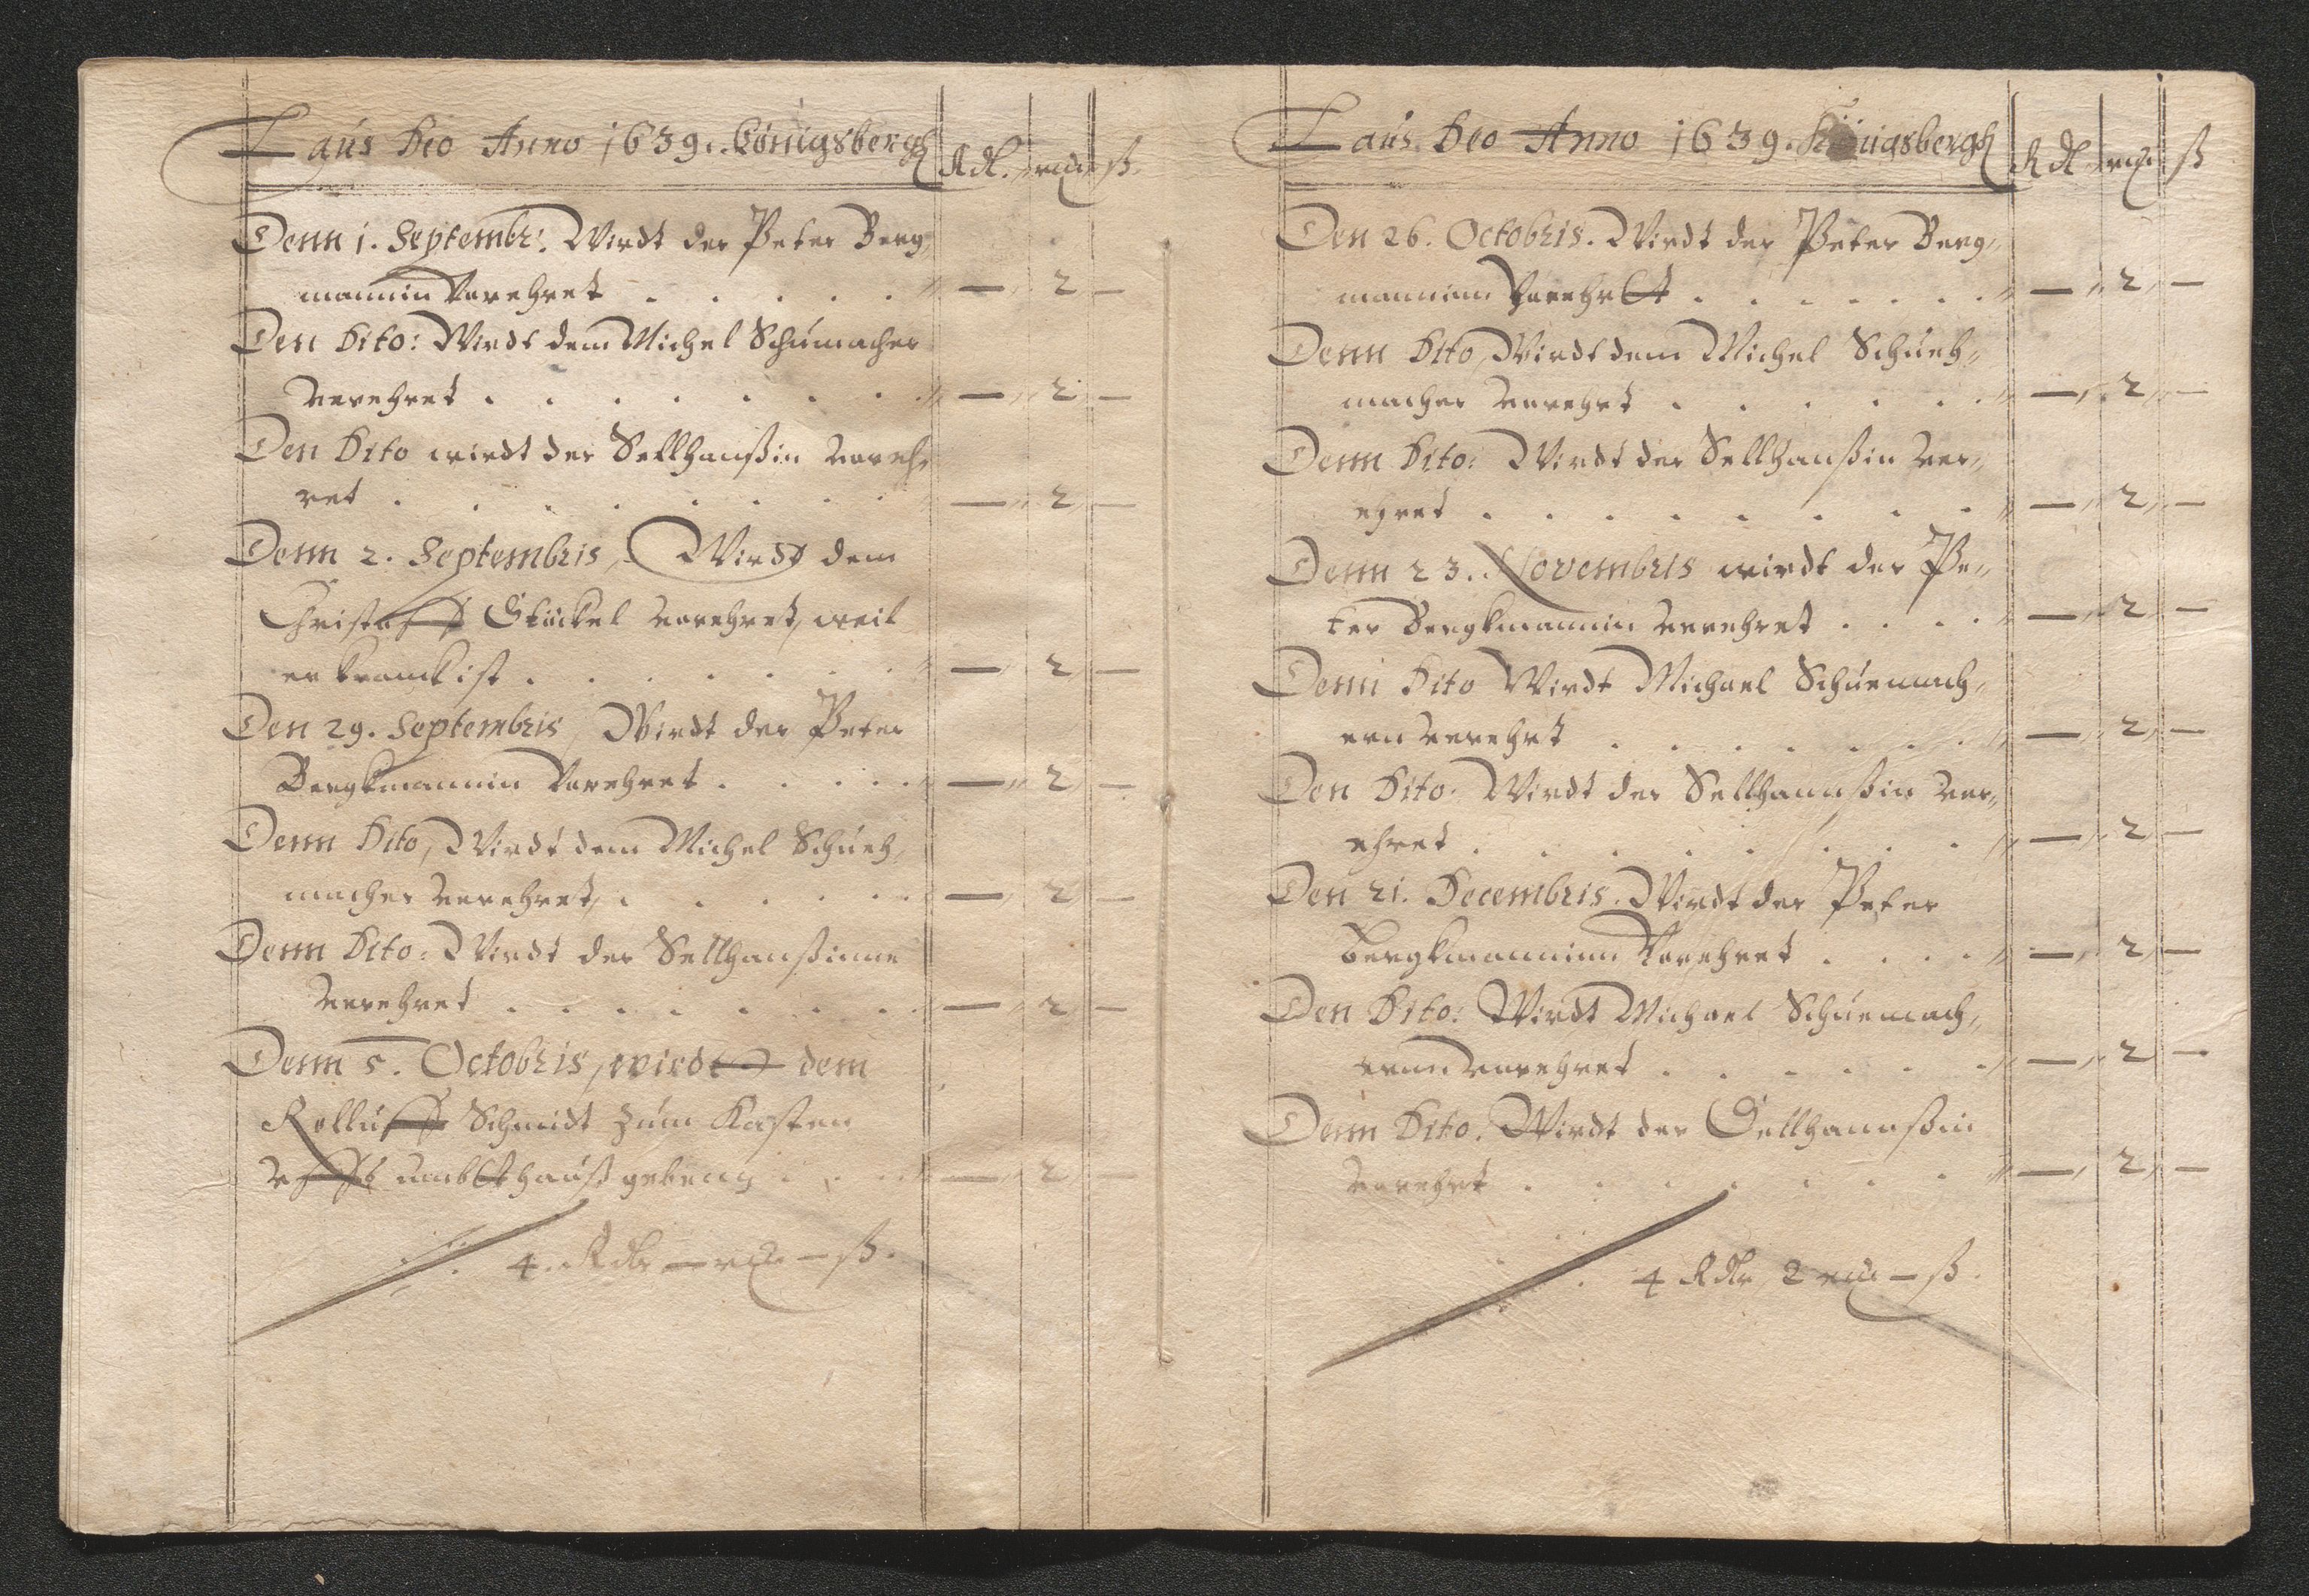 Laus Deo Anno 1639. Königsbergk Rdl. mℓ ß.
Denn 1. Septembr: Wirdt der Peter Berg,,
mannin Verehret . . . . . — 2 —
Den Dito: Wirdt dem Michel Schumacher
verehret . . . . . . . — 2 —
Den Dito wirdt der Sellhanßin vereh,,
ret . . . . . . . — 2 —
Denn 2. Septembris, Wirdt dem
Christoff Stöckel verehret, weil
er kranck ist . . . . . . — 2 —
Den 29. Septembris, Wirdt der Peter
Bergkmannin Verehret . . . . — 2 —
Denn Dito, Wirdt dem Michel Schueh,,
macher verehret, . . . . . — 2 —
Denn Dito: Wirdt der Sellhanßinne
verehret . . . . . . . — 2 —
Denn 5. Octobris, wirdt dem
Schmidt zum Kasten
gebenn . . . — 2 —
4. Rdlr — mℓ — ß.
Laus Deo Anno 1639. Königsbergk Rdl mℓ ß
Den 26. Octobris. Wirdt der Peter Berg,,
manninn Verehrett . . . . . . — 2 —
Denn Dito, Wirdt dem Michel Schueh,,
macher verehrt . . . . . . — 2 —
Denn Dito: Wirdt der Sellhanßin ver,,
ehret . . . . . . . . — 2 —
Denn 23. Novembris wirdt der Pe,,
ter Bergkmannin verehret . . . . — 2 —
Denn Dito Wirdt Michael Schuemach,,
ern verehrt . . . . . . — 2 —
Den Dito. Wirdt der Sellhannßin ver,,
ehret . . . . . . . . — 2 —
Den 21. Decembris. Wirdt der Peter
Bergkmanninn Verehret . . . . — 2 —
Den Dito: Wirdt Michael Schuemach,,
ernn verehret . . . . . . — 2 —
Denn Dito. Wirdt der Sellhannßin
verehrt . . . . . . . — 2 —
4 Rdlr 2 mℓ — ß.